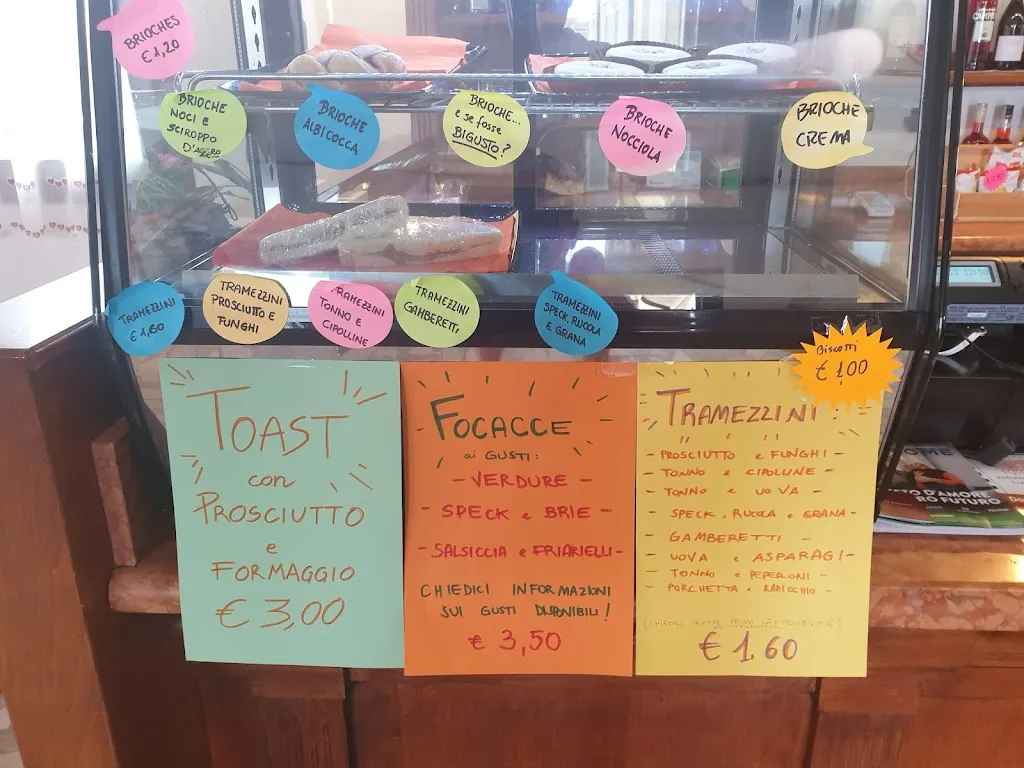 BRIOCHES
€ 1,20
BRIOCHE
NOCI e
SCIROPPO
D'ACERO
BRIOCHE
ALBICOCCA
BRIOCHE...
e se fosse
BIGUSTO?
BRIOCHE
NOCCIOLA
BRIOCHE
CREMA
TRAMEZZINI
€ 1,60
TRAMEZZINI
PROSCIUTTO E
FUNGHI
TRAMEZZINI
TONNO E
CIPOLLINE
TRAMEZZINI
GAMBERETTI
TRAMEZZINI
SPECK, RUCOLA
E GRANA
Biscotti
€ 1,00
TOAST
con
PROSCIUTTO
e
FORMAGGIO
€ 3,00
FOCACCE
ai GUSTI:
- VERDURE -
- SPECK e BRIE -
- SALSICCIA e FRIARIELLI -
CHIEDICI INFORMAZIONI
SUI GUSTI DISPONIBILI!
€ 3,50
TRAMEZZINI:
- PROSCIUTTO e FUNGHI -
- TONNO e CIPOLLINE -
- TONNO e UOVA -
- SPECK, RUCOLA e GRANA -
- GAMBERETTI -
- UOVA e ASPARAGI -
- TONNO e PEPERONI -
- PORCHETTA e RADICCHIO -
€ 1,60
D'AMORE
FUTURO